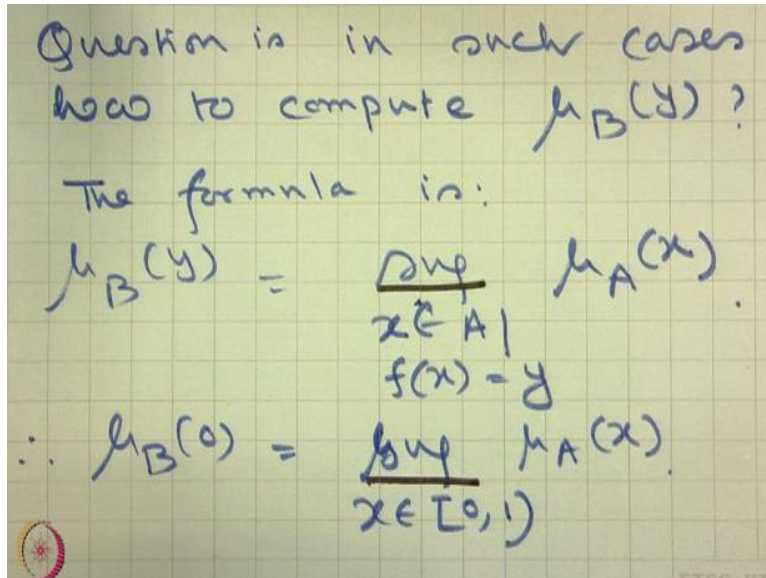 Question is in such cases
how to compute μ_B(y)?
The formula is:
μ_B(y) = sup μ_A(x).
x ∈ A |
f(x) = y
∴ μ_B(0) = sup μ_A(x).
x ∈ [0, 1)